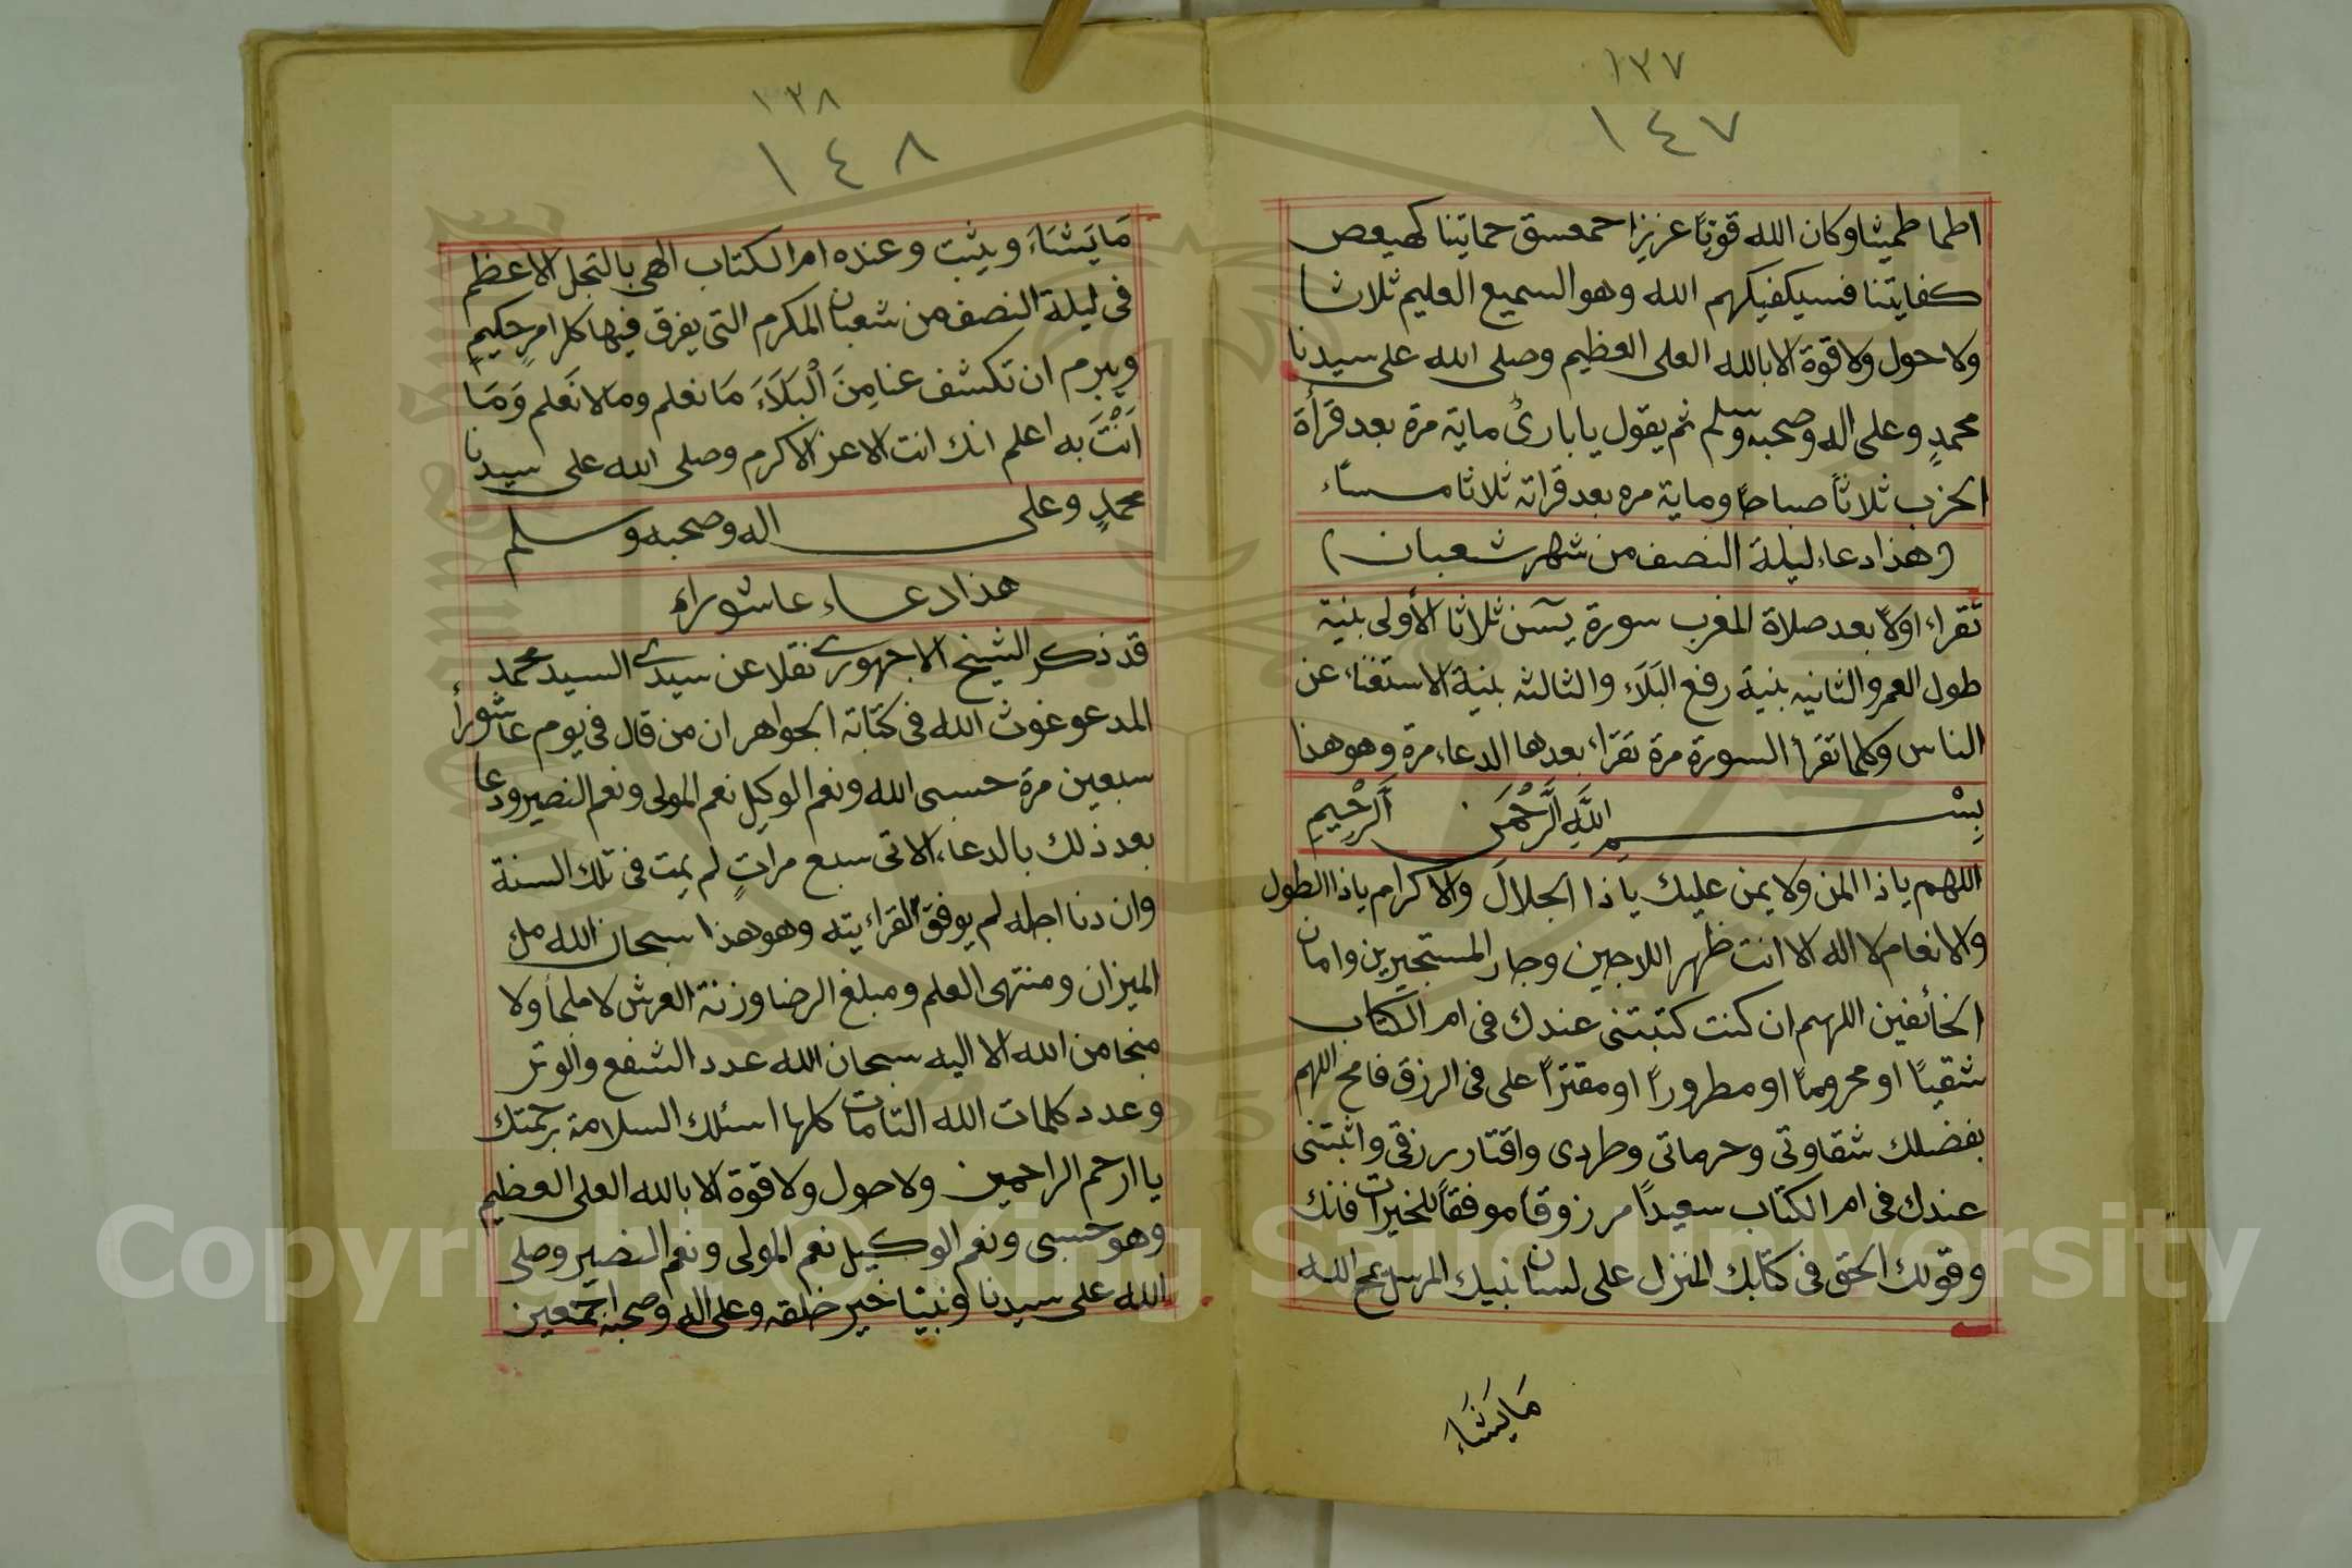 ١٣٧
١٤٧
اطما طميثا وكان الله قويًا عزيزا حمعسق حمايتنا كهيعص
كفايتنا فسيكفيكهم الله وهو السميع العليم ثلاثا
ولا حول ولا قوة الا بالله العلى العظيم وصلى الله على سيدنا
محمدٍ وعلى اله وصحبه وسلم ثم يقول يا بارئ ماية مرة بعد قرأة
الحزب ثلاثاً صباحًا وماية مره بعد قراته ثلاثا مساء
(هذا دعاء ليلة النصف من شهر شعبان)
تقراء اولاً بعد صلاة المغرب سورة يسن ثلاثا الأولى بنية
طول العمر والثانيه بنية رفع البَلَاء والثالثه بنية الاستغناء عن
الناس وكلما تقرأ السورة مرة تقراء بعدها الدعاء مرة وهو هذا
بِسْمِ اللَّهِ الرَّحْمَنِ الَرَّحِيمِ
اللهم يا ذا المن ولا يمن عليك يا ذا الجلالَ والاكرام يا ذا الطول
والانعام لا اله الا انت ظهر اللاجين وجار المستجيرين وامان
الخائفين اللهم ان كنت كتبتنى عندك فى ام الكتاب
شقيًا او محرومًا او مطرورًا او مقترًا على فى الرزق فامح اللهم
بفضلك شقاوتى وحرماتى وطردى واقتار رزقى واثبتنى
عندك فى ام الكتاب سعيدًا مرزوقا موفقًا للخيرات فانك
وقولك الحق فى كتابك المنزل على لسان نبيك المرسل يمح الله
مَا يَشَاءَ
١٣٨
١٤٨
مَا يَشَاءَ ويثبت وعنده ام الكتاب الهى بالتجل الاعظم
فى ليلة النصف من شعبان المكرم التى يفرق فيها كل امرٍ حكيمٍ
ويبرم ان تكشف عنا مِنَ اْلبَلَاءَ مَا نعلم وما لا نَعلم وَمَا
اَنْتَ به اعلم انك انت الاعز الاكرم وصلى الله على سيدنا
محمدٍ وعلى اله وصحبه وسلم
هذا دعاء عاشوراء
قد ذكر الشيخ الاجهورى نقلا عن سيدى السيد محمد
المدعو غوث الله فى كتابه الجواهر ان من قال فى يوم عاشورأ
سبعين مرة حسبى الله ونعم الوكيل نعم المولى ونعم النصير ودعا
بعد ذلك بالدعاء الاتى سبع مراتٍ لم يمت فى تلك السنة
وان دنا اجله لم يوفق لقرائيته وهو هذا سبحان الله مل
الميزان ومنتهى العلم ومبلغ الرضا وزنة العرش لا ملجأ ولا
منجا من الله الا اليه سبحان الله عدد الشفع والوتر
وعدد كلمات الله التامات كلها اسئلك السلامة برحمتك
يا ارحم الراحمين ولا حول ولا قوة الا بالله العلى العظيم
وهو حسبى ونعم الوكيل نعم المولى ونعم النصير وصلى
الله على سيدنا ونبينا خير خلقه وعلى اله وصحبه اجمعين
Copyright © King Saud University